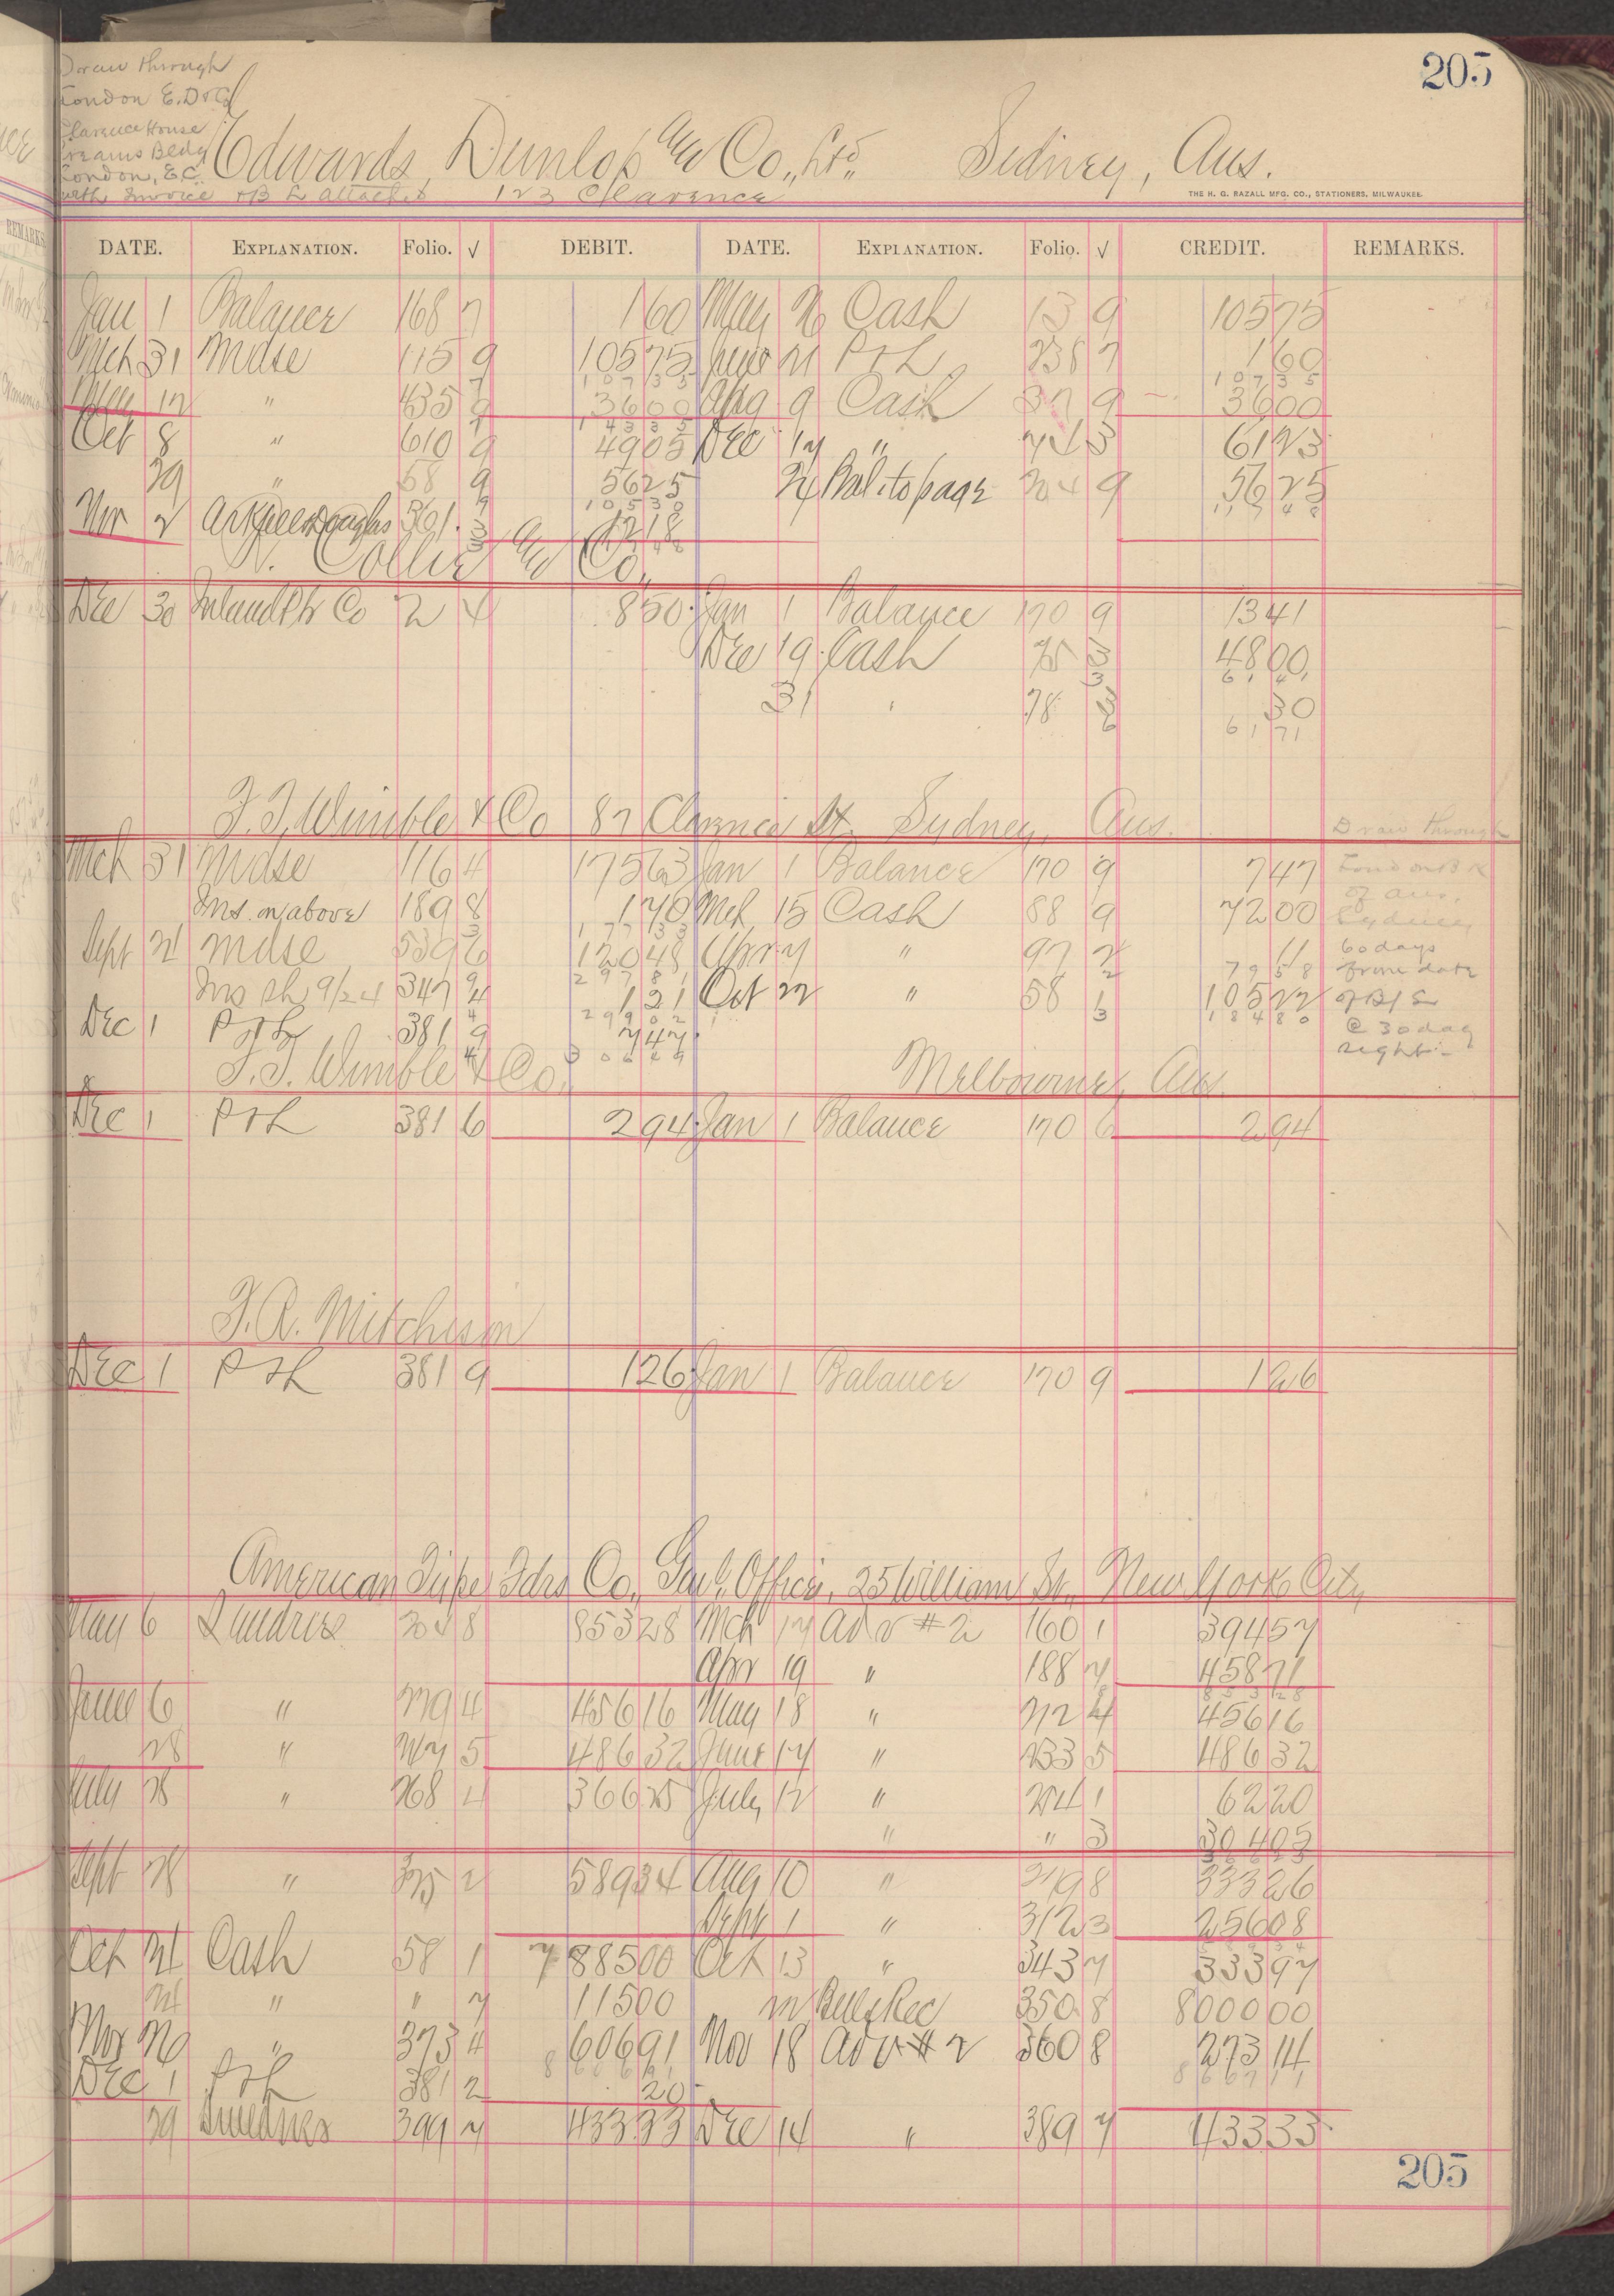 205
Draw through
London E.D&Co
Clarence House
Creams Bldg
London, E.C.
with Invoice & B L attached
Edwards, Dunlop and Co., Ltd., Sidney, Aus.
123 Clarence
THE H. G. RAZALL MFG. CO., STATIONERS, MILWAUKEE.
DATE. EXPLANATION. Folio. √ DEBIT. DATE. EXPLANATION. Folio. √ CREDIT. REMARKS.
Jan 1 Balance 168 7 1 60 May 26 Cash 13 9 105 75
Mch 31 Mdse 115 9 105 75 June 21 P&L 238 7 1 60
107 35 107 35
May 12 " 435 9 36 00 Aug 9 Cash 37 9 36 00
Oct 8 " 610 9 49 05 Dec 17 " 61 23
29 " 58 9 56 25 24 Bal. to page 204 9 56 25
105 30
Nov 2 361 3 12 18
N. Collie and Co.,
Dec 30 Inland Ptr Co 2 4 8 50 Jan 1 Balance 170 9 13 41
Dec 19 Cash 75 3 48 00
61 41
31 " 78 30
61 71
F. T. Wimble & Co 87 Clarence St. Sydney, Aus.
Draw through
Mch 31 Mdse 116 4 175 63 Jan 1 Balance 170 9 7 47
London Bk
of Aus.
Sydney
Ins. on above 189 8 1 70 Mch 15 Cash 88 9 72 00
177 33
Sept 21 Mdse 539 6 120 48 Apr 7 " 97 2 11
60 days
297 81 79 58
from date
Ins sh 9/24 347 4 1 21 Oct 22 " 58 3 105 22
of B/L
299 02 184 80
@ 30 day
sight.
Dec 1 P&L 381 9 7 47
306 49
F. T. Wimble & Co., Melbourne, Aus.
Dec 1 P&L 381 6 2 94 Jan 1 Balance 170 6 2 94
F. A. Mitcheson
Dec 1 P&L 381 9 1 26 Jan 1 Balance 170 9 1 26
American Type Fdrs Co., Gen'l. Office, 25 William St., New York City
May 6 Sundries 204 8 853 28 Mch 17 Adv #2 160 1 394 57
Apr 19 " 188 7 458 71
853 28
June 6 " 219 4 456 16 May 18 " 212 4 456 16
28 " 5 486 32 June 17 " 233 5 486 32
July 28 " 268 4 366 25 July 12 " 254 1 62 20
" " 3 304 05
Sept 28 " 325 2 589 34 Aug 10 " 279 8 333 26
Sept 1 " 312 3 256 08
Oct 21 Cash 58 1 7 885 00 Oct 13 " 343 7 333 97
21 " " 7 115 00 Bills Rec 350 8 8000 00
Nov 29 " 373 4 606 91 Nov 18 Adv #2 360 8 273 14
Dec 1 P&L 381 2 20
29 Sundries 399 7 433 33 Dec 14 " 389 7 433 33
205